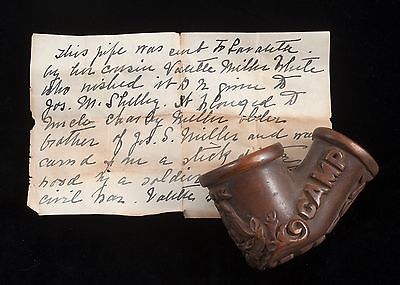 This pipe was cent to Lavalette
by her cousin Valette Miller White
who wished it to be given to
Jos. M. Shelby. It belonged to
Uncle Charly Miller older
brother of Jos. S. Miller and was
carved from a stick
wood by a soldier
civil war. Valette
CAMP